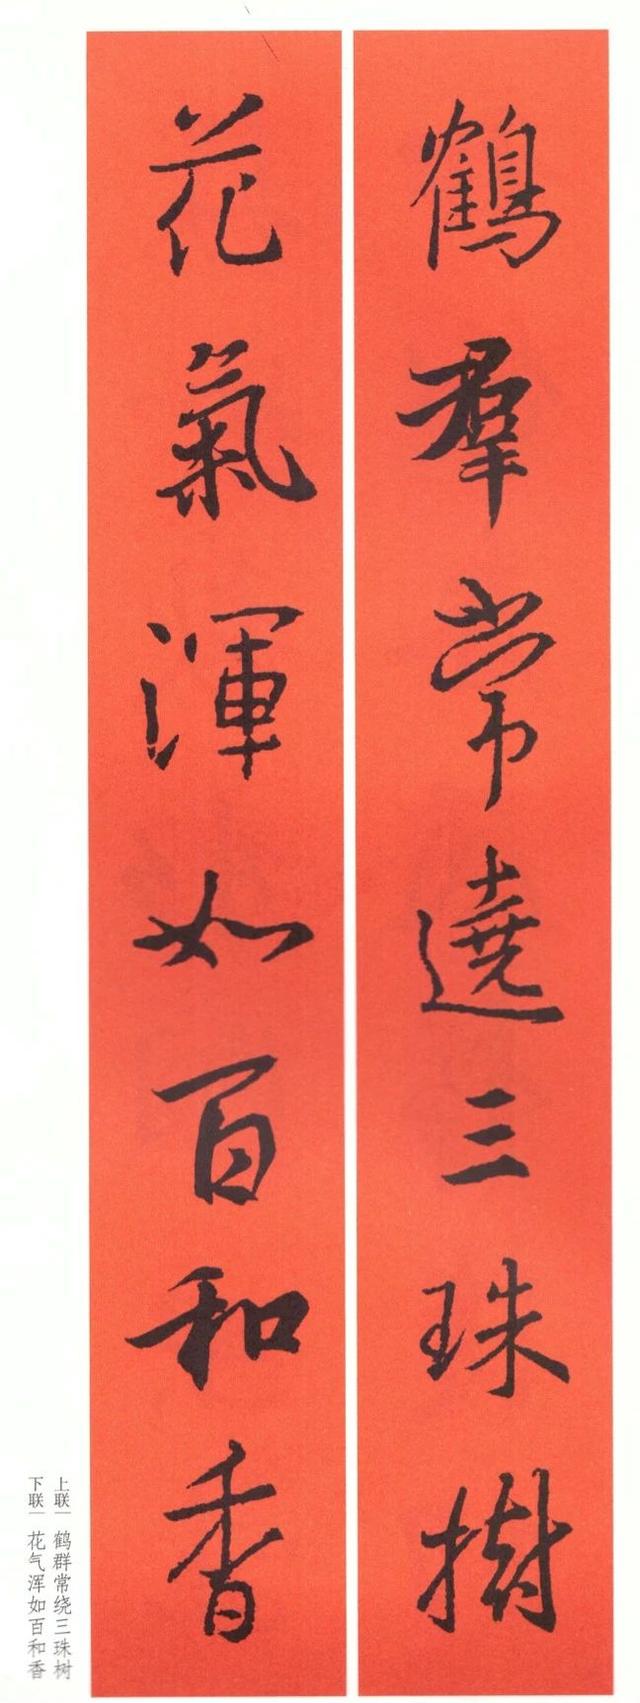 鶴羣常遶三珠樹
花氣渾如百和香
上联｜鹤群常绕三珠树
下联｜花气浑如百和香